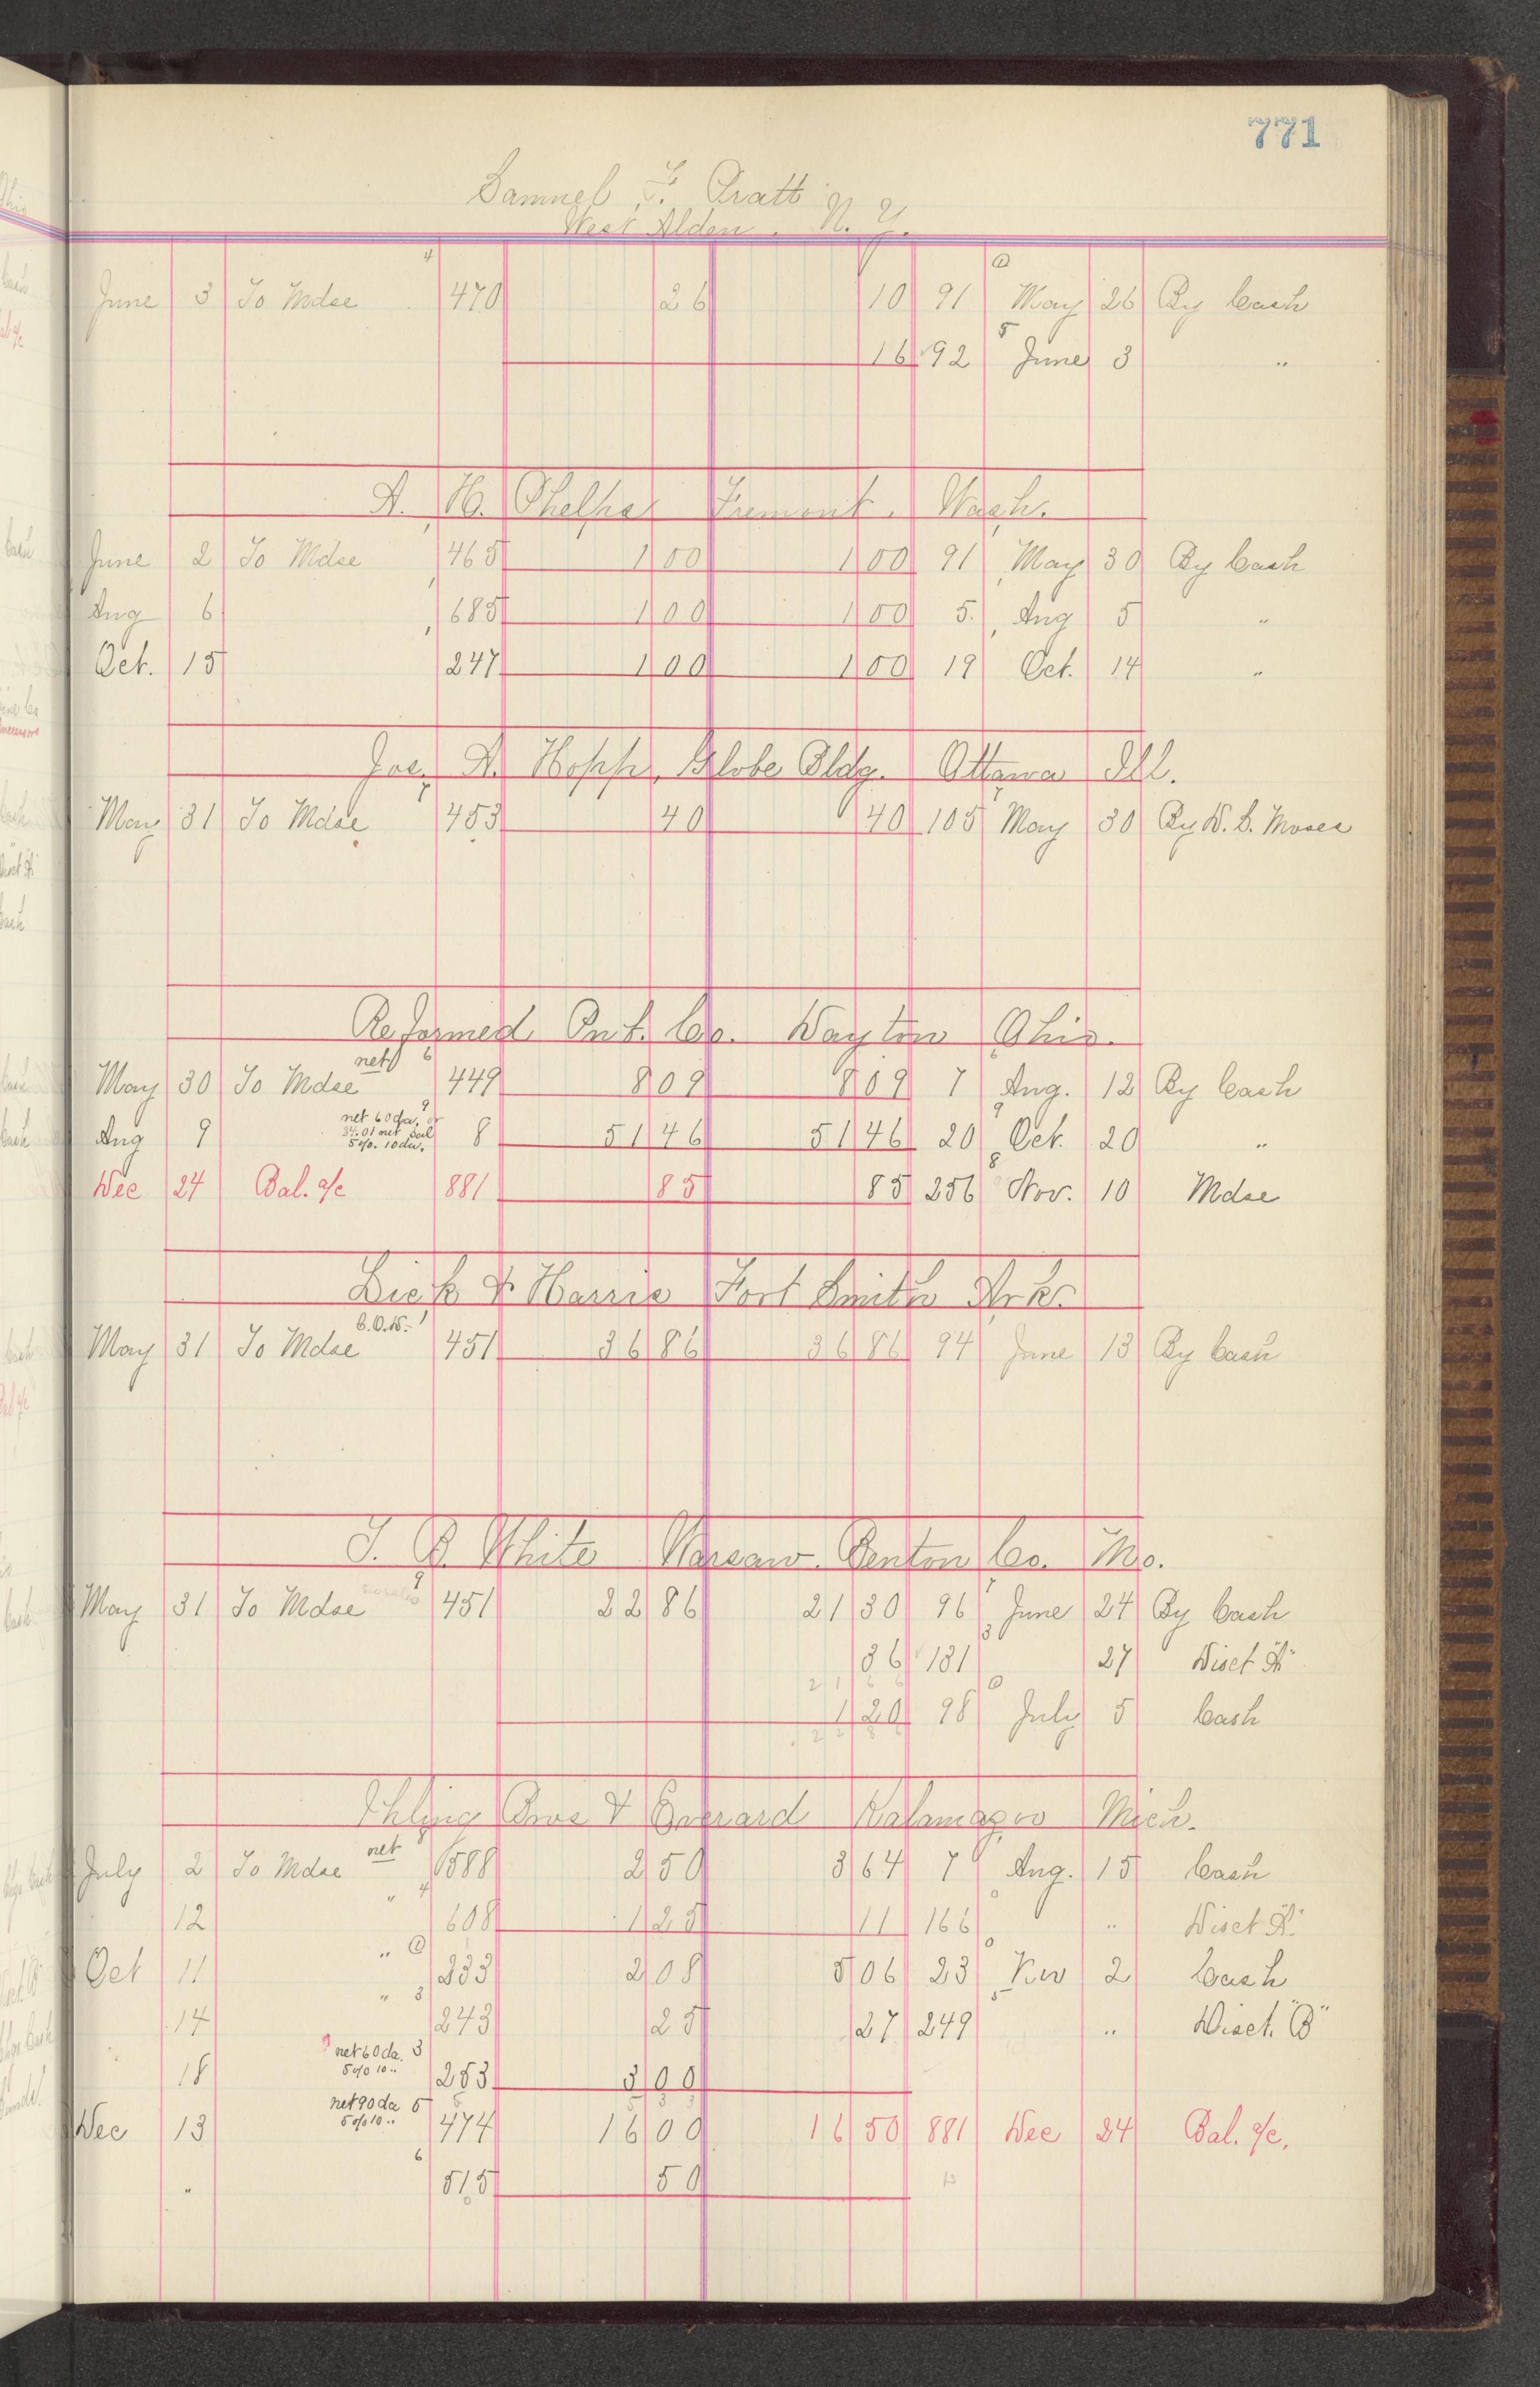 771
Samuel F. Pratt
West Alden. N. Y.
4
June 3 To Mdse 470 26 10 91 May 26 By Cash
5
16 92 June 3 "
A. H. Phelps Fremont. Wash.
June 2 To Mdse 465 1 00 1 00 91 May 30 By Cash
Aug 6 685 1 00 1 00 5 Aug 5 "
Oct. 15 247 1 00 1 00 19 Oct. 14 "
Jos. A. Hopp, Globe Bldg. Ottawa Ill.
May 31 To Mdse 453 40 40 105 May 30 By D. S. Moses
Reformed Pub. Co. Dayton Ohio.
net 6
May 30 To Mdse 449 8 09 8 09 7 Aug. 12 By Cash
net 60 da. or 9
Aug 9 5% 10 da. 8 51 46 51 46 20 Oct. 20 "
Dec 24 Bal. a/c 881 85 85 256 Nov. 10 Mdse
Dick & Harris Fort Smith Ark.
C.O.D. 1
May 31 To Mdse 451 36 86 36 86 94 June 13 By Cash
T. B. White Warsaw. Benton Co. Mo.
9
May 31 To Mdse 451 22 86 21 30 96 June 24 By Cash
3
36 131 27 Disct "A"
21 66
1 20 98 July 5 Cash
Ihling Bros & Everard Kalamazoo Mich.
net
July 2 To Mdse 588 2 50 3 64 7 Aug. 15 Cash
" 4
12 608 1 25 11 166 " Disct "A"
"
Oct 11 233 2 08 5 06 23 Nov 2 Cash
" 3
14 243 25 27 249 " Disct. "B"
net 60 da. 3
18 5% 10 " 253 3 00
net 90 da 5
Dec 13 5% 10 " 474 16 00 16 50 881 Dec 24 Bal. a/c.
6
" 515 50